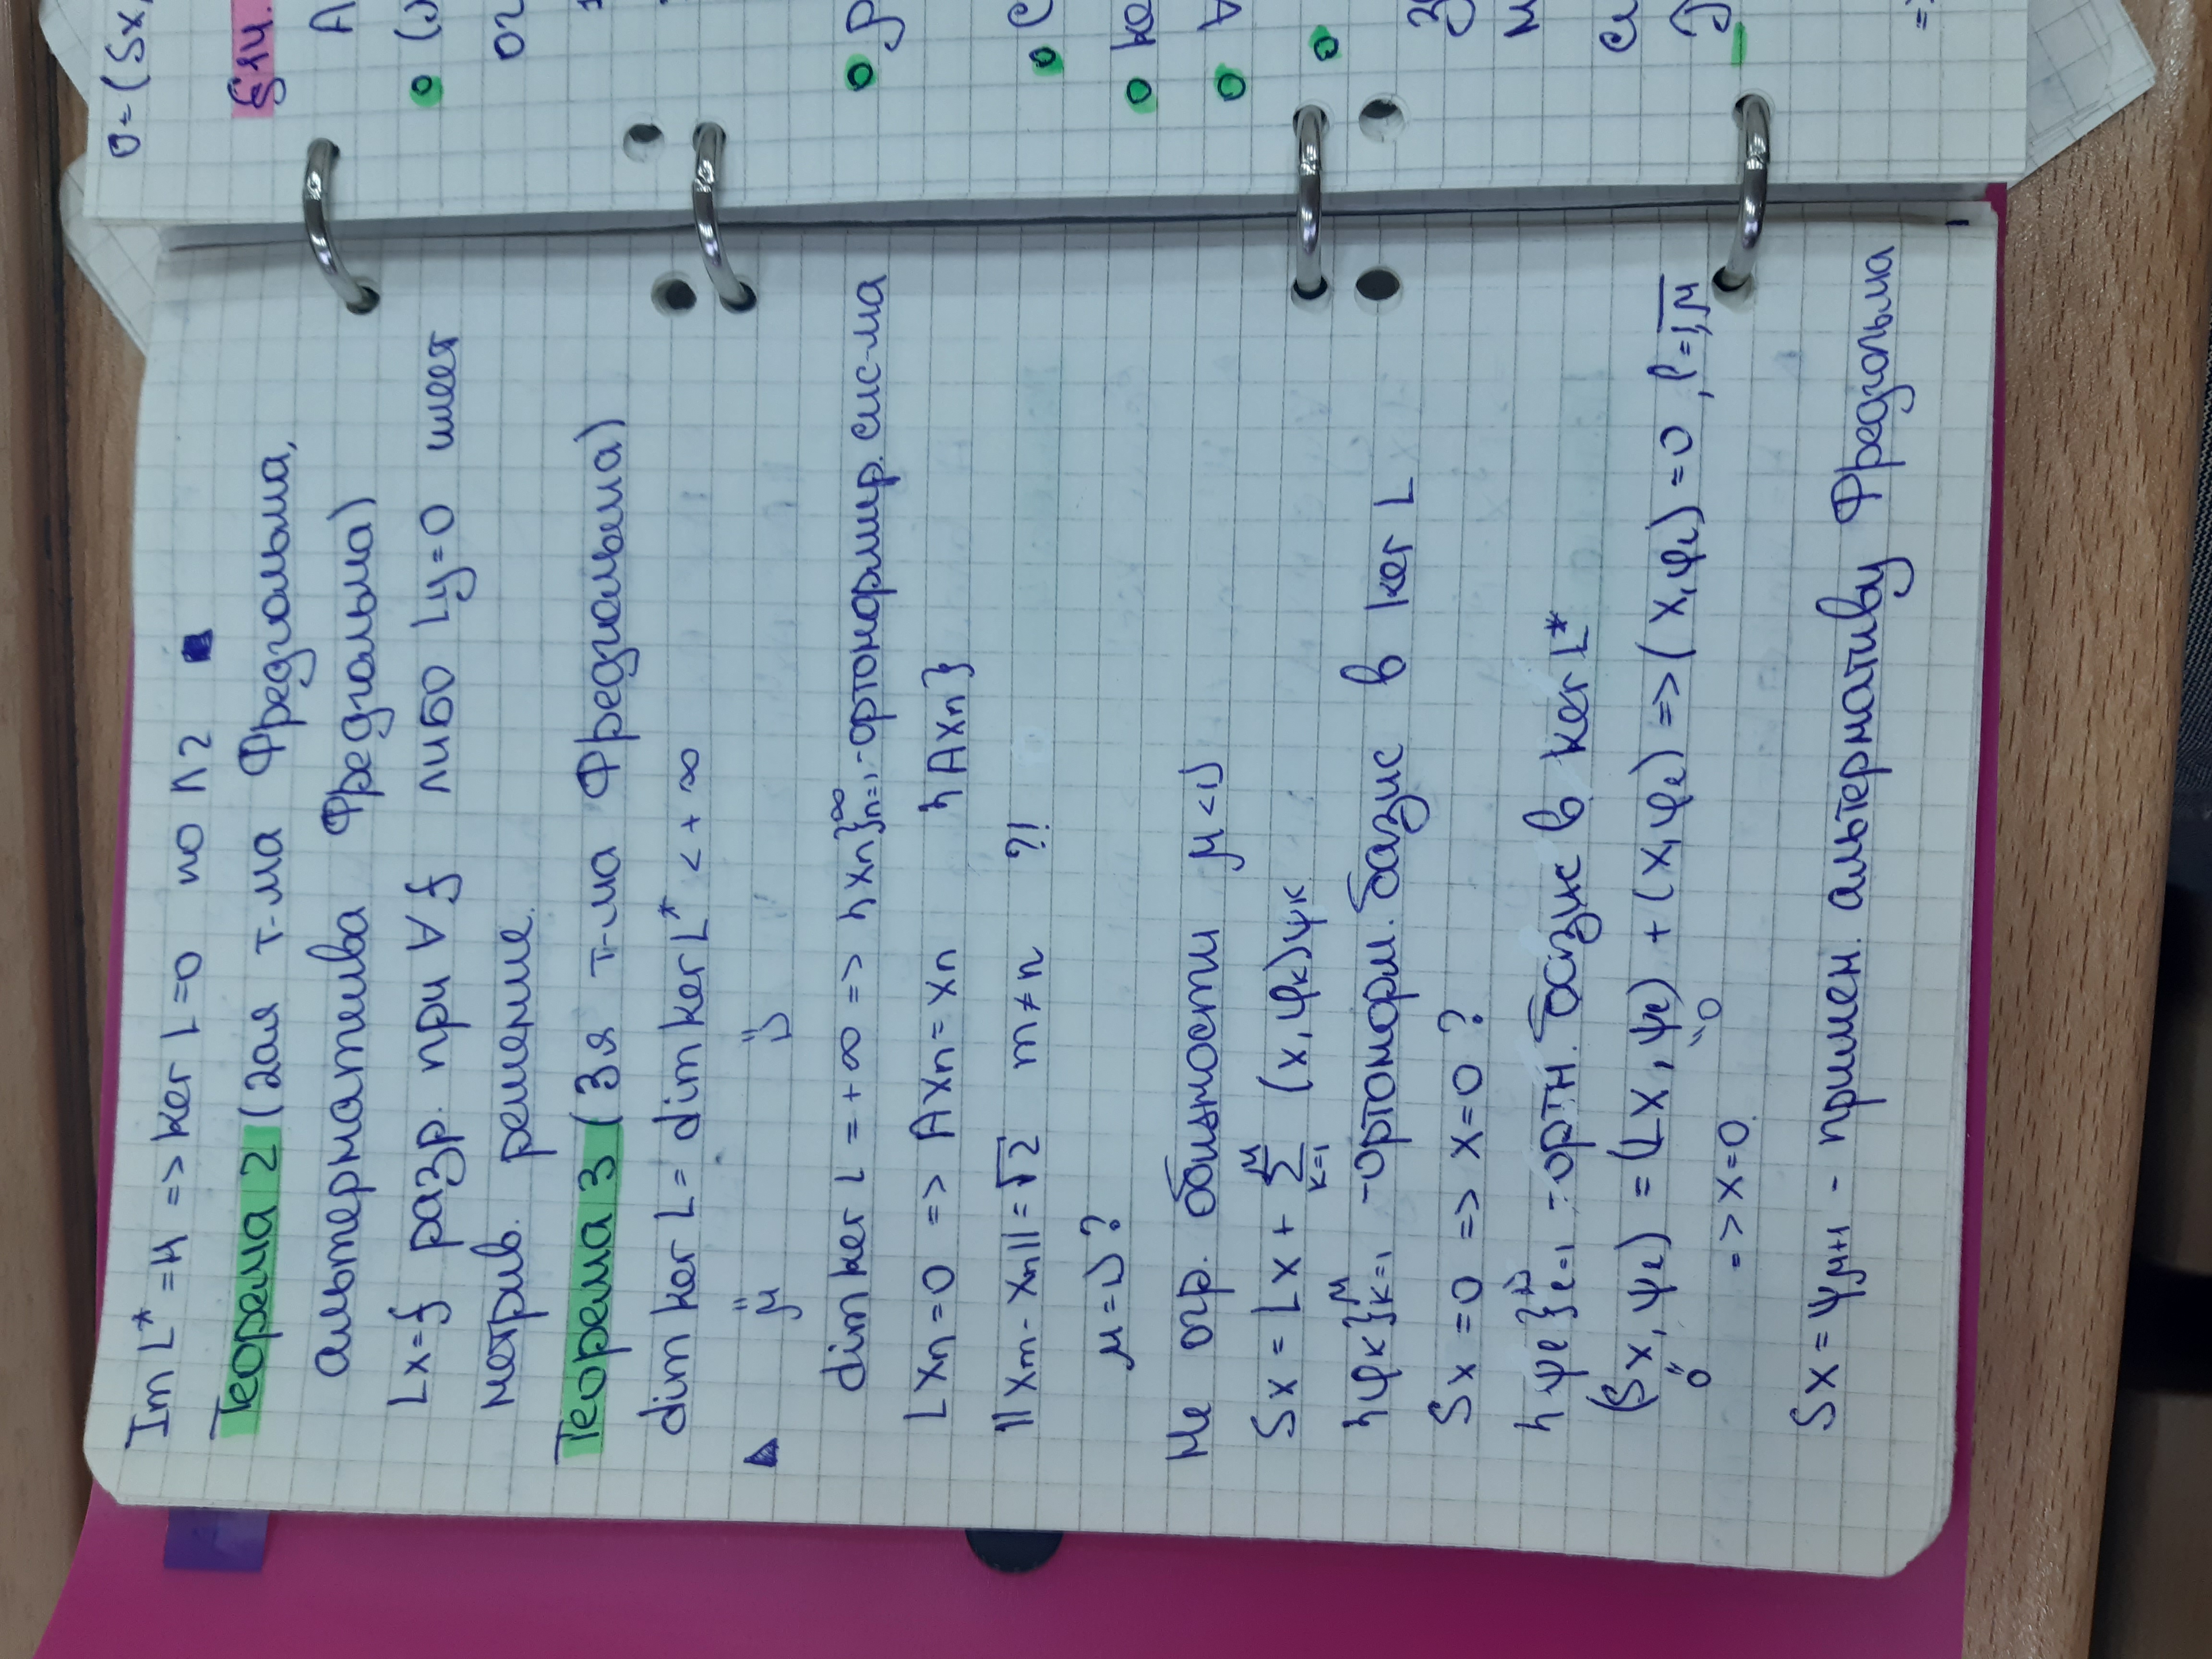 Im L* = H => ker L = 0 по п2 ■
Теорема 2 (2ая т-ма Фредгольма,
альтернатива Фредгольма)
Lx = f разр. при ∀ f либо Ly = 0 имеет
нетрив. решение.
Теорема 3 (3я т-ма Фредгольма)
dim ker L = dim ker L* < + ∞
▲ μ ν
dim ker L = + ∞ => {xn}n=1^∞ - ортонормир. сис-ма
Lxn = 0 => Axn = xn {Axn}
||xm - xn|| = √2 m ≠ n ?!
μ = ν ?
Не огр. общности μ < ν
Sx = Lx + ∑k=1^μ (x, φk)ψk
{φk}k=1^μ - ортонорм. базис в ker L
Sx = 0 => x = 0 ?
{ψl}l=1^ν - ортн. базис в ker L*
(Sx, ψl) = (Lx, ψl) + (x, φl) => (x, φl) = 0 , l = 1,μ
0 " "0
=> x = 0.
Sx = ψμ+1 - примен. альтернативу Фредгольма
0 = (Sx,
§14.
A
(
ог
к
A
=>